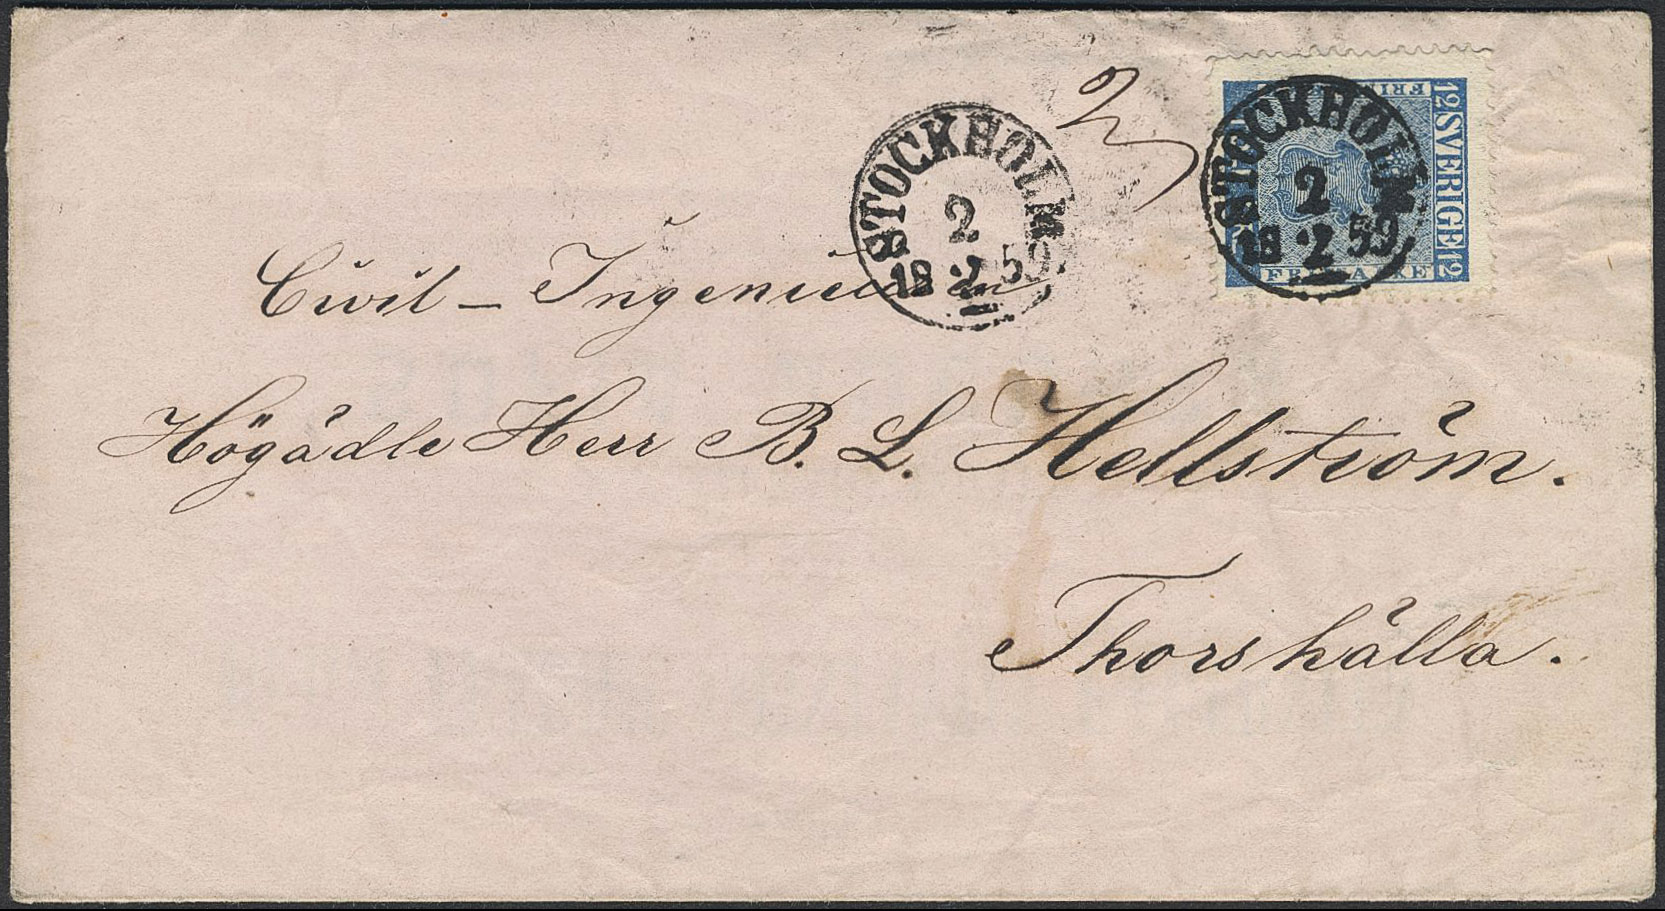 STOCKHOLM
2
18 2 59
2
STOCKHOLM
2
18 2 59
FRIMÄRKE
12 SVERIGE 12
FRIMÄRKE
Civil - Ingenieuren
Högädle Herr B. L. Hellström.
Thorshälla.